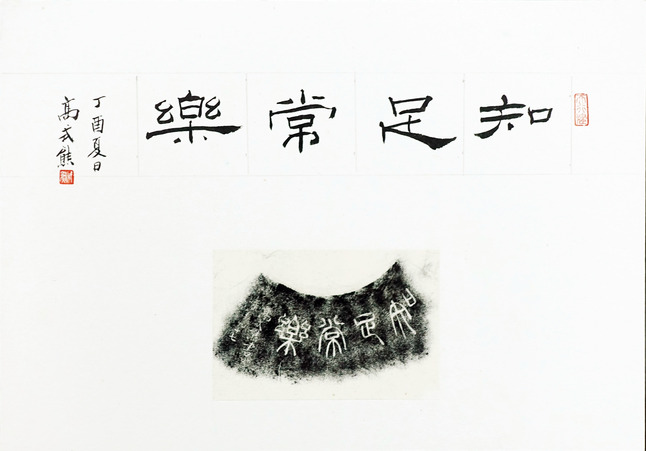 知足常樂
丁酉夏日
高式熊
知足常樂